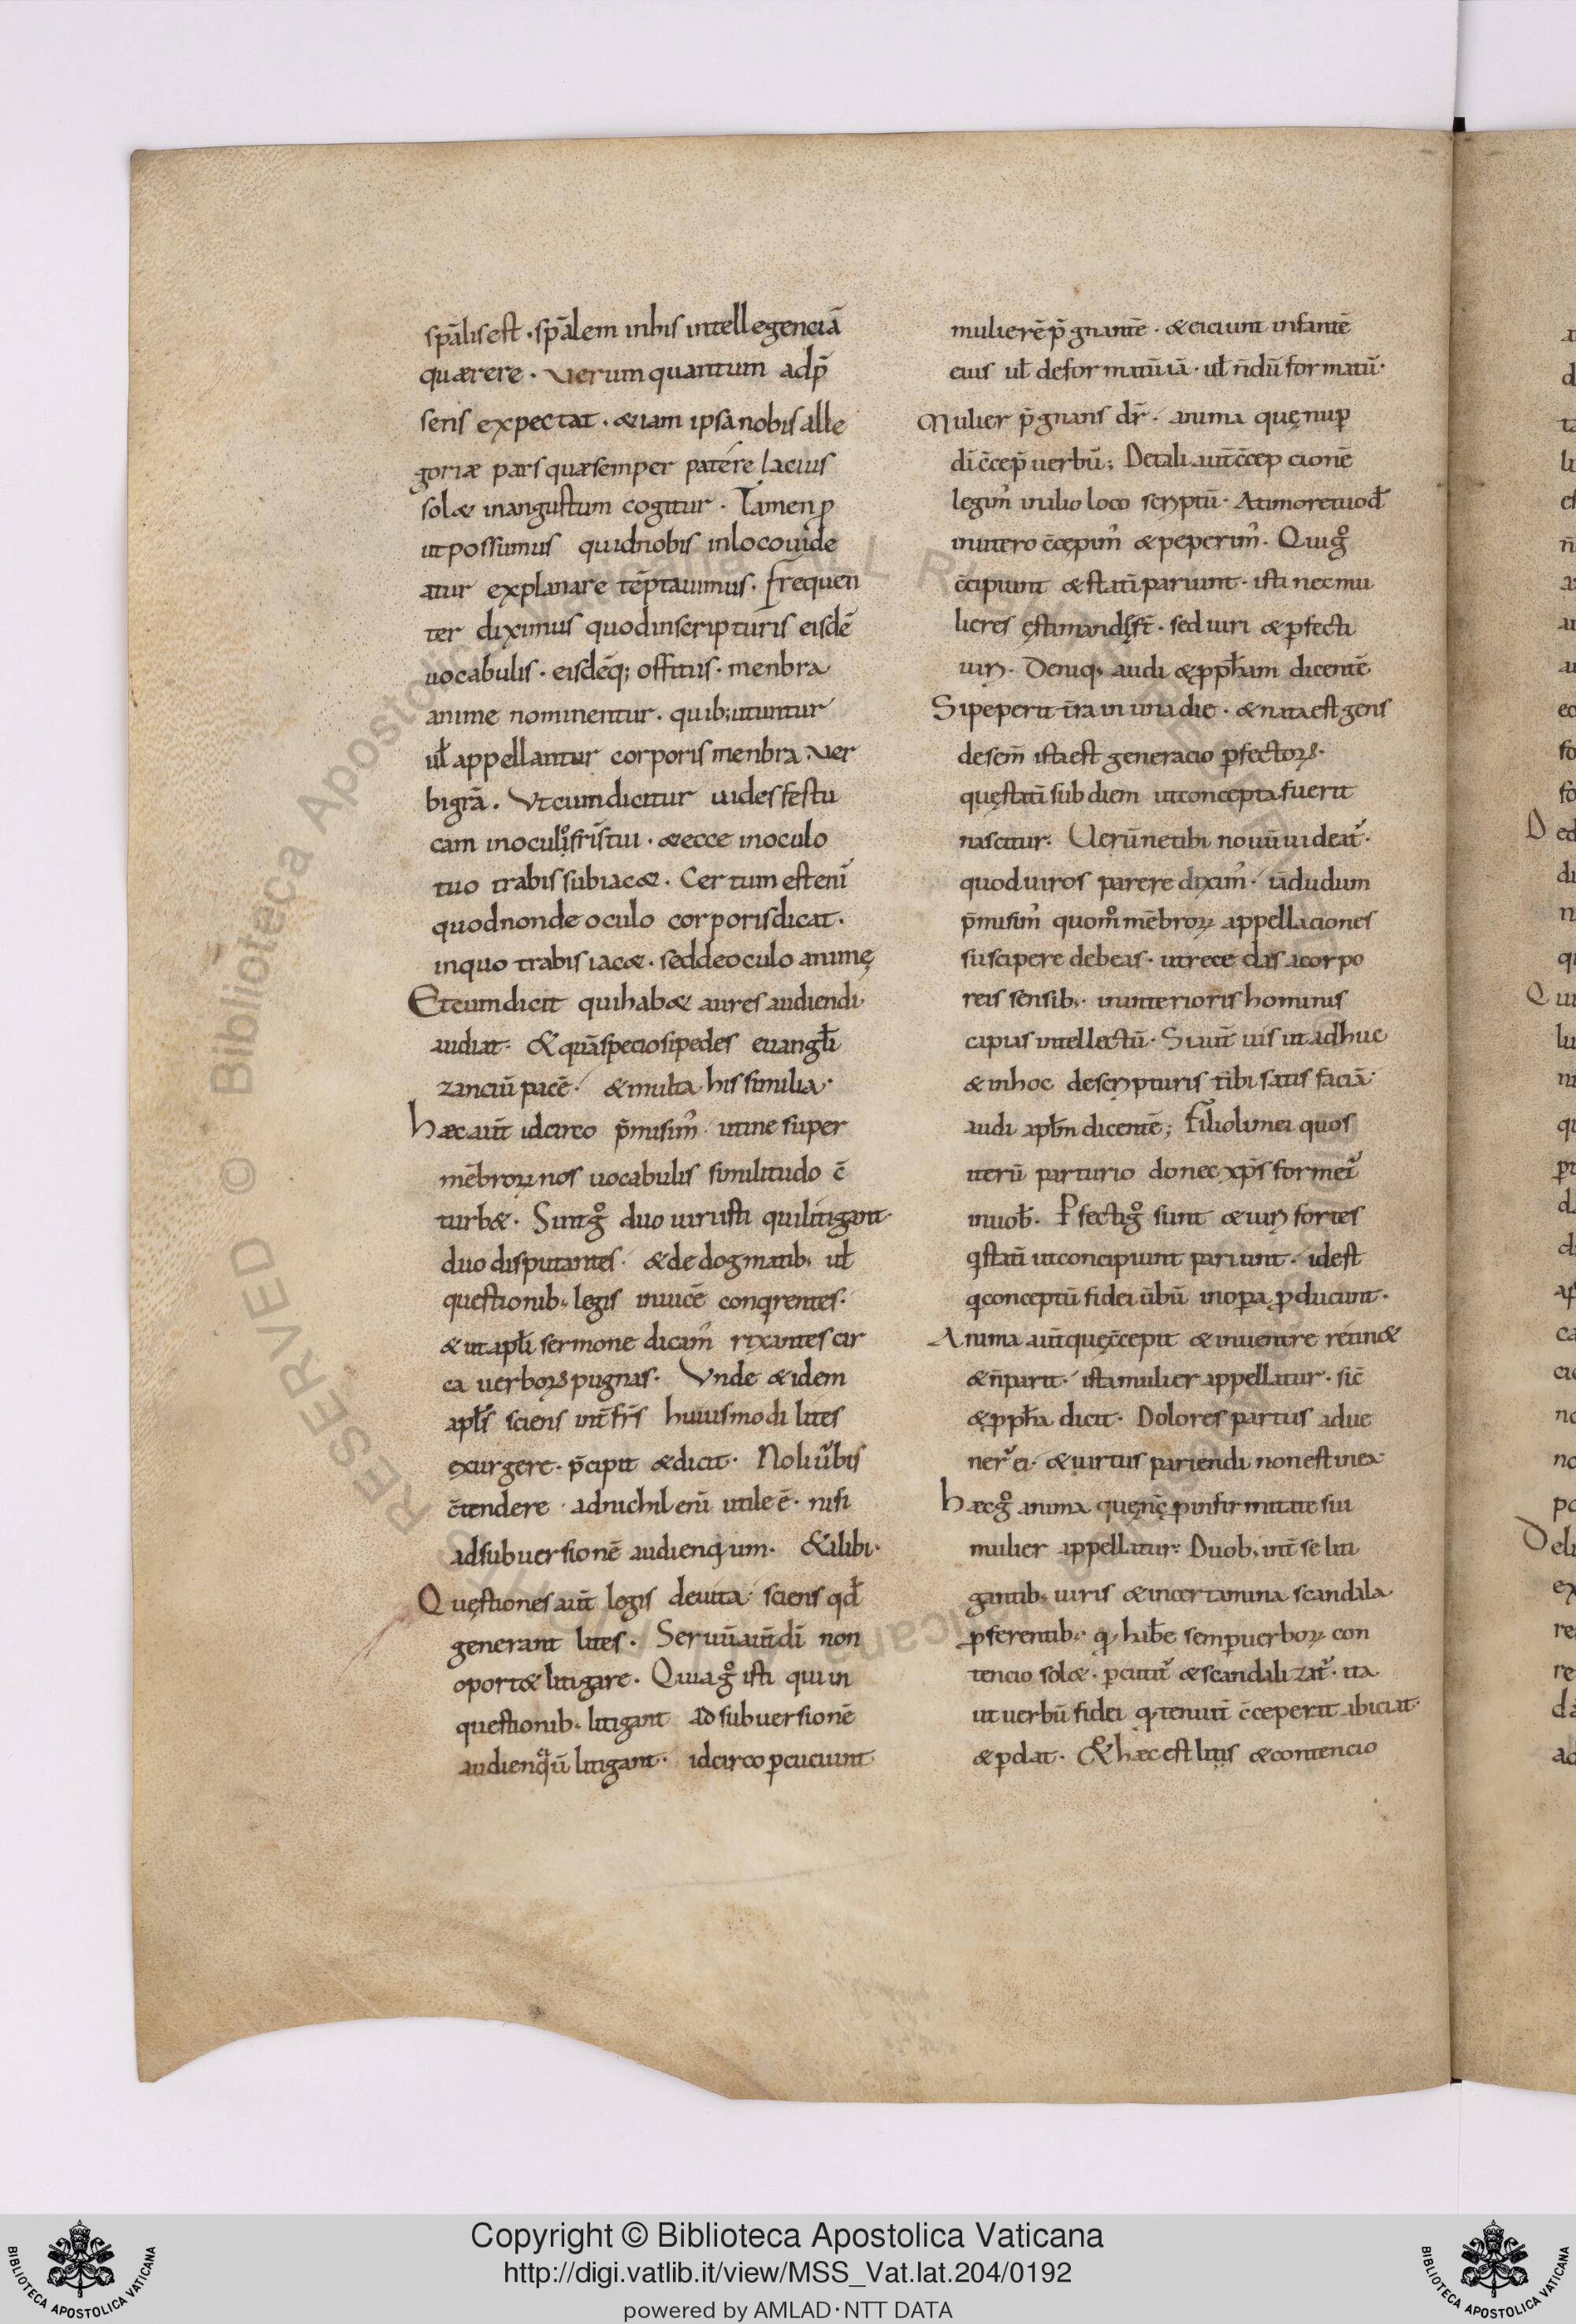 sp̄alis est · sp̄alem in his intellegenciā
quærere · Verum quantum ad p̄
sens expectat · & iam ipsa nobis alle
goriæ pars quæ semper patere lacius
sol& in angustum cogitur · Tamen ꝓ
ut possumus quid nobis in loco uide
atur explanare tēptauimus · frequen
ter diximus quod in scripturis eisdē
uocabulis · eisdēq; offitiis · menbra
anime nominentur · quib; utuntur
ul̄ appellantur corporis menbra · Ver
bi grā · Vt cum dicitur uides festu
cam in oculo fr̄is tui · & ecce in oculo
tuo trabis subiac& · Certum est enī
quod non de oculo corporis dicat ·
in quo trabis iac& · sed de oculo animę
Et cum dicit qui hab& aures audiendi
audiat · & quā speciosi pedes euangl̄i
zanciū pacē · & multa his similia ·
Hæc aut̄ idcirco p̄misim᾽ ut ine super
mēbroꝝ nos uocabulis similitudo c̄
turb& · Sint g̊ duo uiri isti qui litigant ·
duo disputantes · & de dogmatib; ul̄
questionib; legis inuicē conq̇rentes ·
& ut apl̄i sermone dicam᾽ rixantes cir
ca uerboꝝ pugnas · Vnde & idem
apl̄s sciens int̄ fr̄s huiusmodi lites
exurgere · p̄cipit & dicit · Noli ūbis
c̄tendere · ad nichil enī utile ē · nisi
ad subuersionē audienciūm · & alibi ·
Quęstiones aut̄ legis deuita · sciens qd̄
generant lites · Seruū aut̄ dī non
oport& litigare · Quia g̊ isti qui in
questionib; litigant ad subuersionē
audienciū litigant · idcirco ꝑcuciunt
mulierē p̄gnantē · & eiciunt infantē
eius ul̄ deformatū iā · ul̄ n̄dū formatū ·
Mulier p̄gnans dr̄ · anima quę nup̄
dī c̄cep̄ uerbū; De tali aut̄ c̄cepcionē
legim᾽ in alio loco scriptū · A timore tuo d̄
in utero c̄cępim᾽ & peperim᾽ · Qui g̊
c̄cipiunt & statī pariunt · isti nec mu
lieres ęstimandę st̄ · sed uiri & ꝑfecti
uiri · Deniq; audi & ꝓph̄am dicentē
Si peperit t̄ra in una die · & nata est gens
de sem̄ ista est generacio ꝑfectoꝝ ·
quę statī sub diem ut concepta fuerit
nascitur · Verū ne tibi nouū uideat᾽ ·
quod uiros parere dixim᾽ · iādudum
p̄misim᾽ quom̊ mēbroꝝ appellaciones
suscipere debeas · ut recedas a corpo
reis sensib; · in interioris hominis
capias intellectū · Si aut̄ uis ut adhuc
& in hoc de scripturis tibi satis faciā ·
audi apl̄m dicentē; Filioli mei quos
iterū parturio donec xp̄s formet᾽
in uob̄ · Ꝑfecti g̊ sunt & uiri fortes
q̇ statī ut concipiunt pariunt · id est
q̇ conceptū fidei ūbū in oꝑa ꝓducunt ·
Anima aut̄ quę c̄cepit & in uentre retin&
& n̄ parit · ista mulier appellatur · sic̄
& ꝓph̄a dicit · Dolores partus adue
ner᾽ ei · & uirtus pariendi non est in ea ·
Hæc g̊ anima quę nc̄ ꝓ infirmitate sui
mulier appellatur · Duob; int̄ se liti
gantib; uiris & in certamina scandala
ꝓferentib; · q̇ hab̄e semꝑ uerboꝝ con
tencio sol& · ꝑcutit᾽ & scandalizat᾽ · ita
ut uerbū fidei q̇ tenuit̄ c̄ceperit abiciat ·
& ꝑdat · & hæc est litis & contencio
Copyright © Biblioteca Apostolica Vaticana
http://digi.vatlib.it/view/MSS_Vat.lat.204/0192
powered by AMLAD·NTT DATA